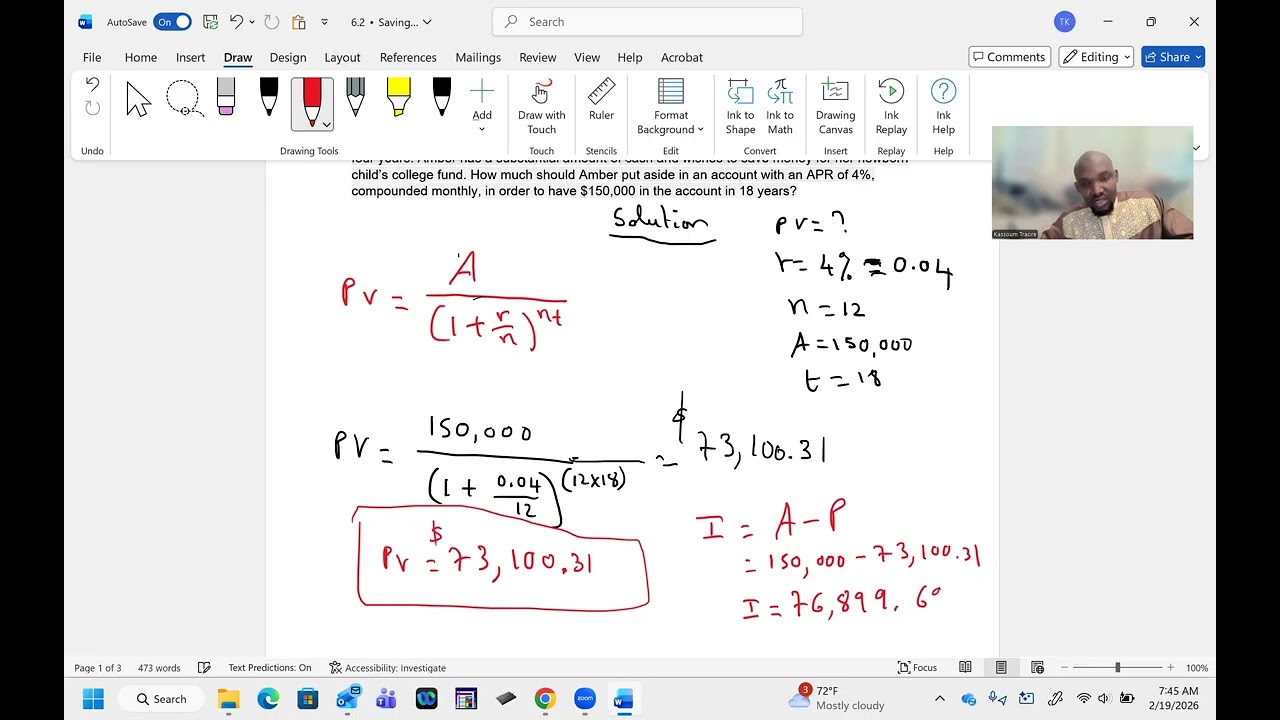 AutoSave On 6.2 • Saving... Search TK
File Home Insert Draw Design Layout References Mailings Review View Help Acrobat Comments Editing Share
Add Draw with Touch Ruler Format Background Ink to Shape Ink to Math Drawing Canvas Ink Replay Ink Help
Undo Drawing Tools Touch Stencils Edit Convert Insert Replay Help
four years. Amber has a substantial amount of cash and wishes to save money for her newborn
child's college fund. How much should Amber put aside in an account with an APR of 4%,
compounded monthly, in order to have $150,000 in the account in 18 years?
Kassoum Traore
Solution
PV = ?
r = 4% = 0.04
n = 12
A = 150,000
t = 18
PV = A / (1 + r/n)^nt
PV = 150,000 / (1 + 0.04/12)^(12x18) = $73,100.31
PV = $73,100.31
I = A - P
= 150,000 - 73,100.31
I = 76,899.6
Page 1 of 3 473 words Text Predictions: On Accessibility: Investigate Focus 100%
Search zoom 3 72°F Mostly cloudy 7:45 AM 2/19/2026